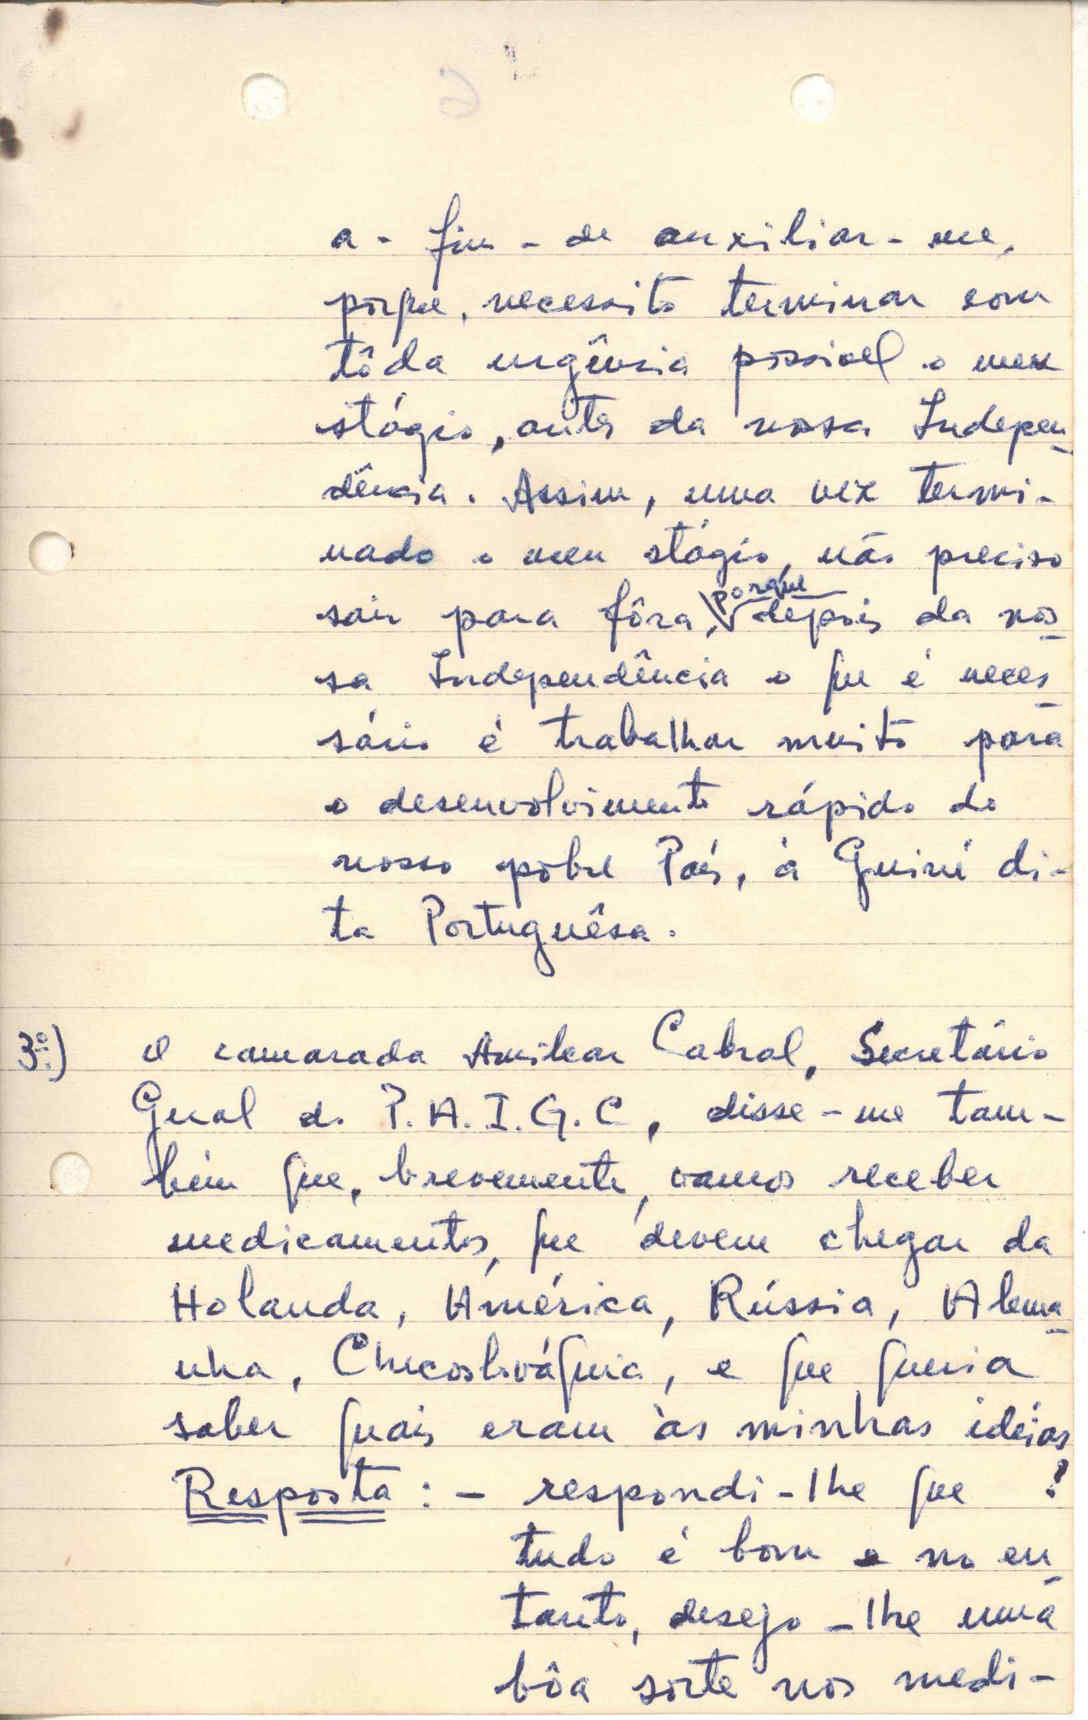 6
a - fim - de auxiliar - me,
porque, necessito terminar com
tôda urgência possivel o meu
stágio, antes da nossa Indepen_
dência. Assim, uma vez termi-
nado o meu stágio, não preciso
sair para fôra, porque depois da nos_
sa Independência o que é neces_
sário é trabalhar muito para
o desenvolvimento rápido do
nosso pobre País, à Guiné di-
ta Portuguêsa.
3º.) O camarada Amilcar Cabral, Secretário
Geral do P.A.I.G.C, disse-me tam-
bém que, brevemente, vamos receber
medicamentos, que devem chegar da
Holanda, América, Rússia, Alema_
nha, Checoslováquia, e que queria
saber quais eram às minhas idéias?
Resposta : - respondi-lhe que
tudo é bom e no en_
tanto, desejo-lhe uma
bôa sorte nos medi-